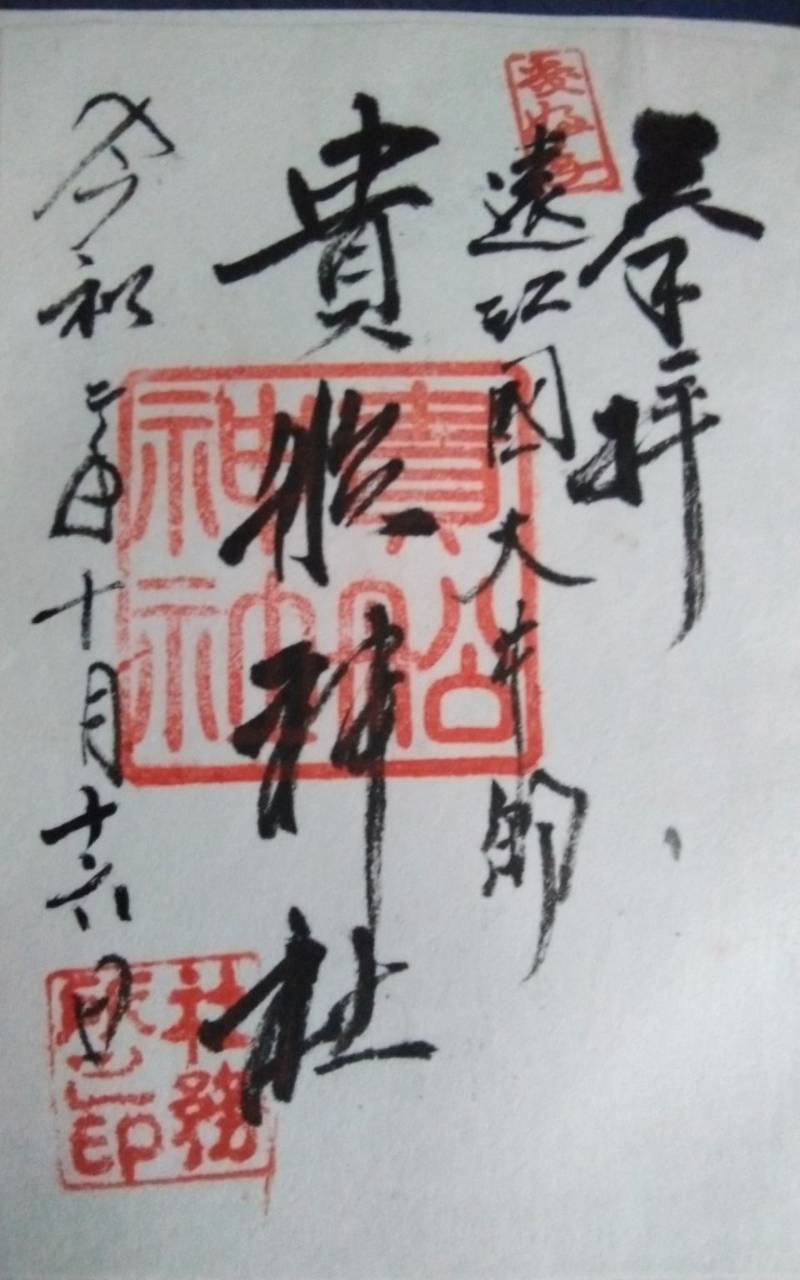 奉拝
遠江國大井
貴舩神社
令和二年十月十六日
貴舩神社
社務所之印